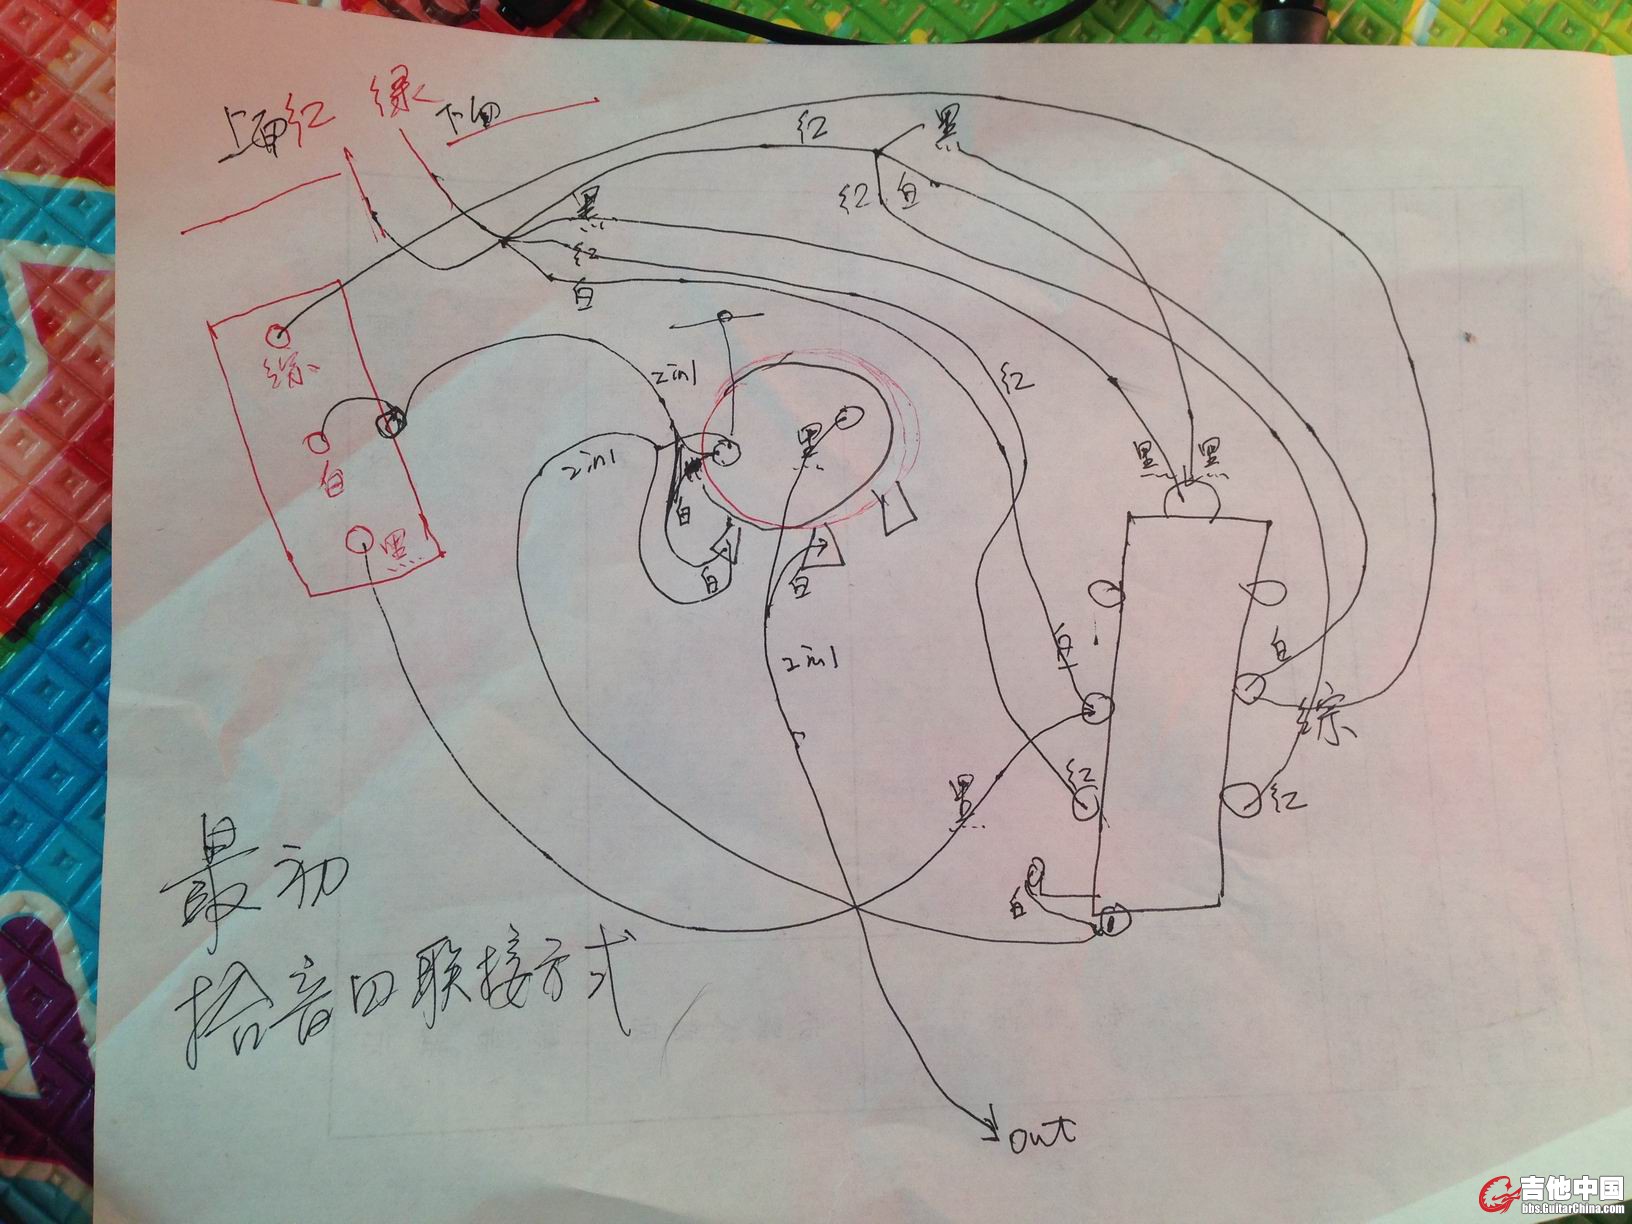 上面 红 绿 下面
红
黑
黑
红
白
红
白
综
白
黑
2in1
2in1
黑
白
白
白
2in1
红
黑
黑
白
白
综
红
红
黑
白
最初
拾音四联接方式
out
吉他中国
bbs.GuitarChina.com